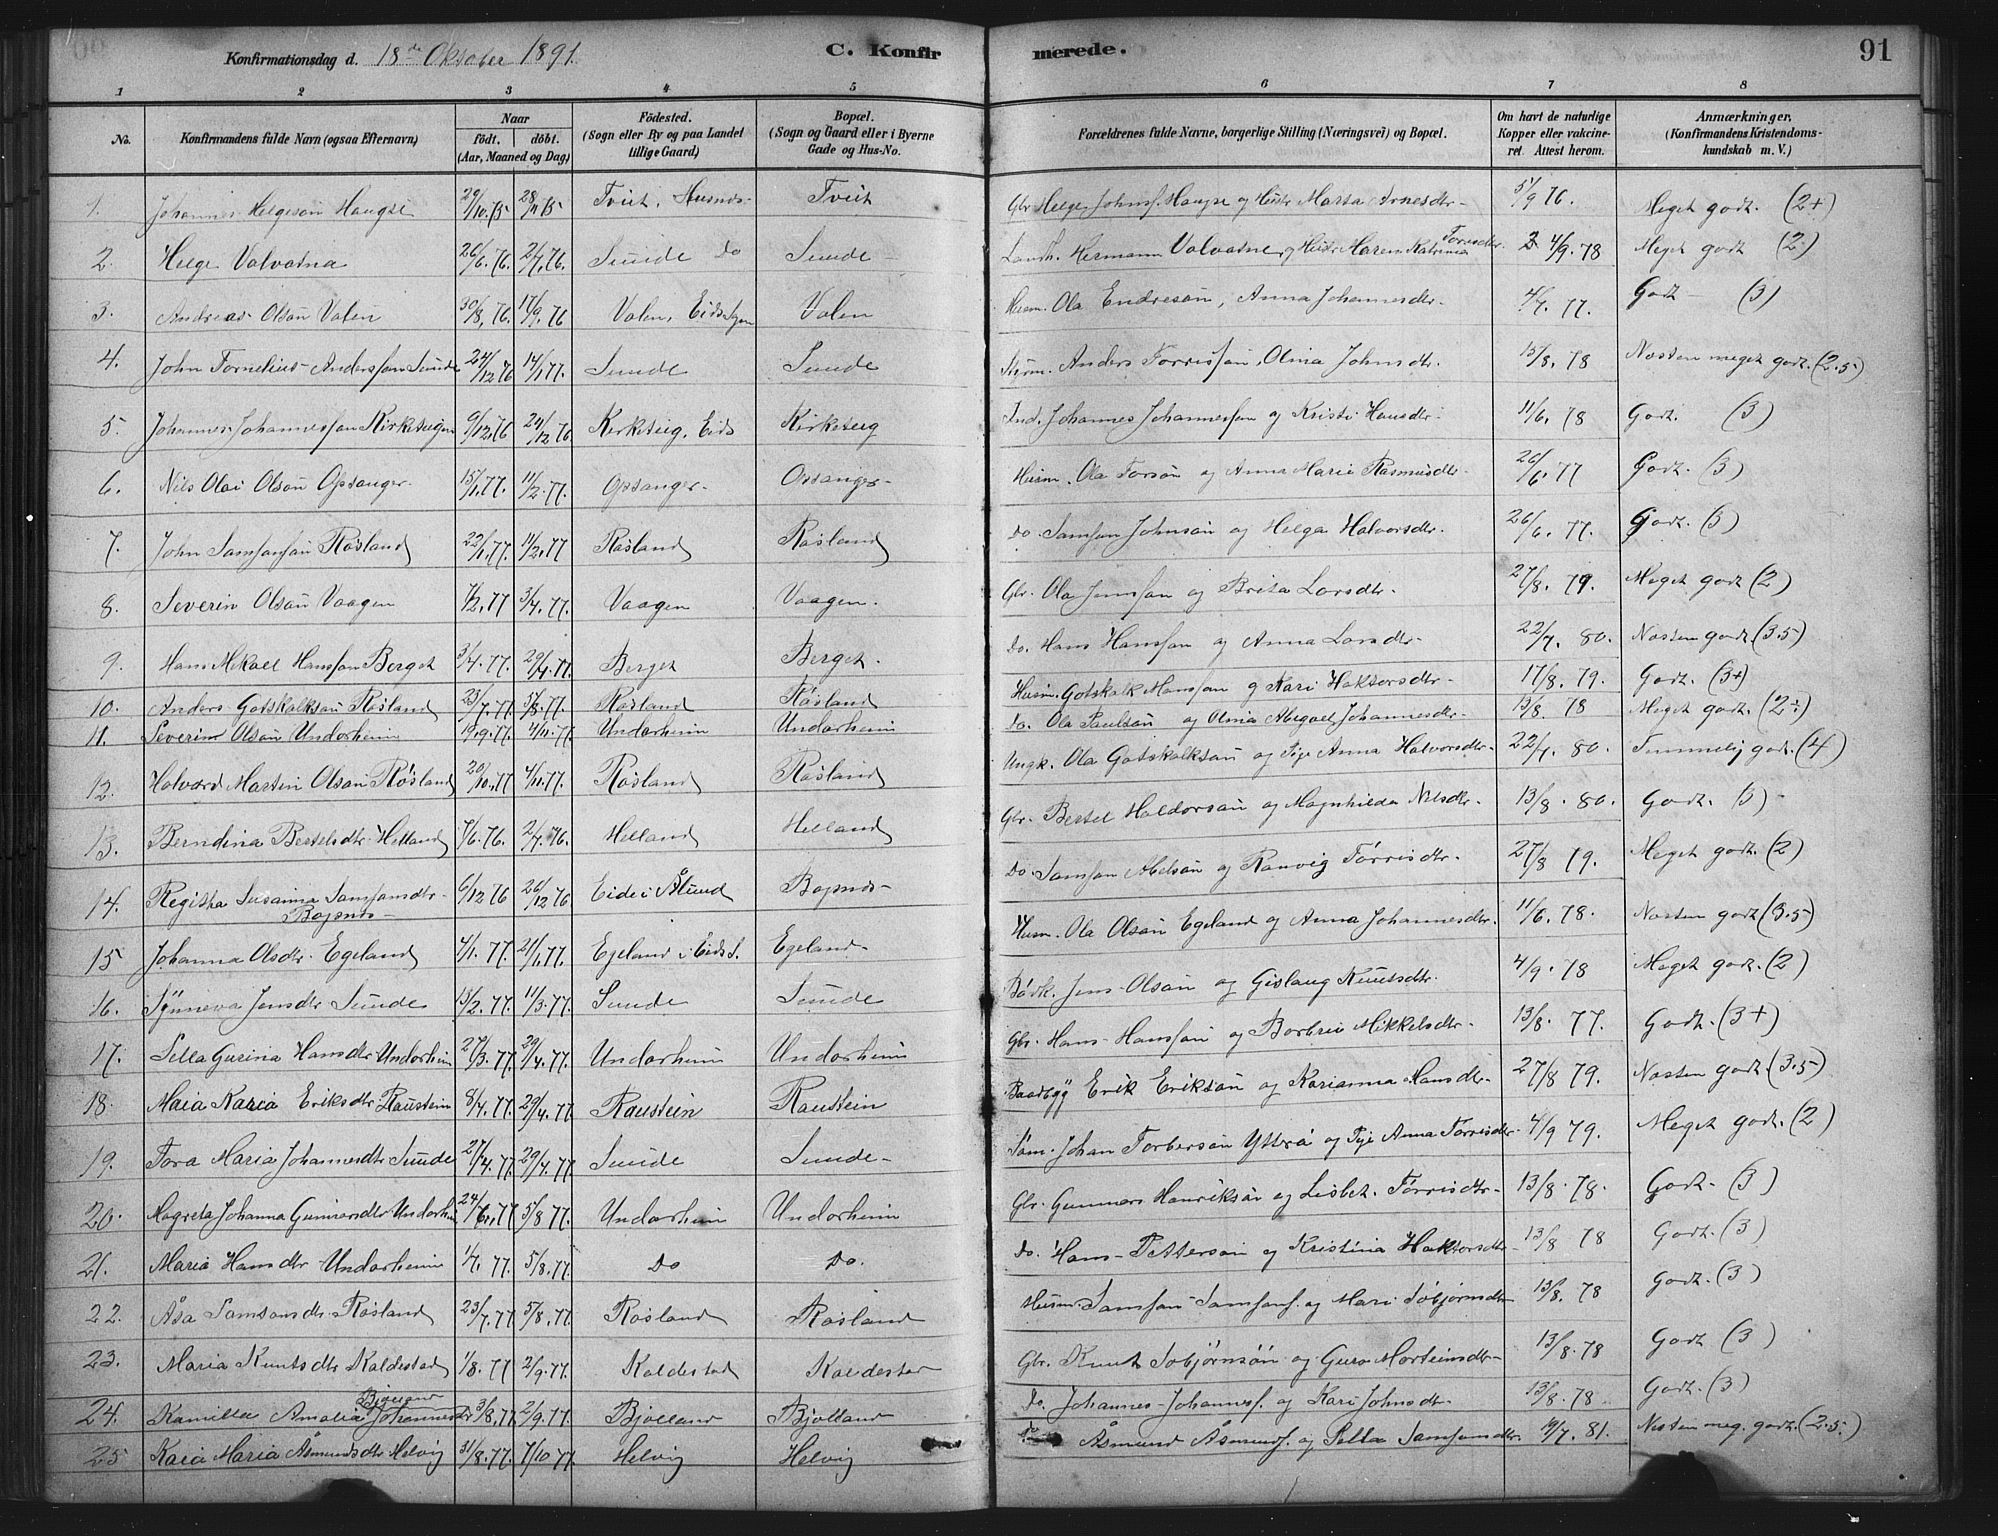 Konfirmationsdag d. 18de Oktober 1891. C. Konfirmerede. 91
1 2 3 4 5 6 7 8
No. Konfirmandens fulde Navn (ogsaa Efternavn) Naar født. døbt. (Aar, Maaned og Dag) Fødested. (Sogn eller By og paa Landet tillige Gaard) Bopæl. (Sogn og Gaard eller i Byerne Gade og Hus-No. Forældrenes fulde Navne, borgerlige Stilling (Næringsvei) og Bopæl. Om havt de naturlige Kopper eller vakcineret. Attest herom. Anmærkninger. (Konfirmandens Kristendomskundskab m. V.)
1. Johannes Helgeson Haugse 29/10.75 28/11 75 Tveit, Husnes. Tveit Gbr Helge Johns. Haugse og Hustr Marta Arnesdtr. 5/9 76. Meget godt. (2+)
2. Helge Valvatna 26/6.76. 2/7.76. Sunde Do Sunde Landh. Hermann Valvatne og Hustr Maren Katrina Torresdtr. 4/9.78 Meget godt (2)
3. Andreas Olson Valen 30/8,76. 17/9.76 Valen, Eids Valen Husm. Ola Endreson, Anna Johannesdtr. 4/7.77. Godt (3)
4. John Tornelius Andersson Sunde 24/12 76 14/1 77. Sunde Sunde Styrm. Anders Torrisson, Olina Johnsdtr. 13/8.78 Næsten meget godt. (2.5)
5. Johannes Johannesson Kirketeigen 9/12.76 24/12 76 Kirketeig, Eids Kirketeig Ind. Johannes Johannesson og Kristi Hansdtr. 11/6.78 Godt. (3)
6. Nils Olai Olson Opsanger 15/1.77. 11/2.77. Opsanger. Opsanger. Husm. Ola Torson og Anna Maria Rasmusdtr. 26/6.77 Godt. (3)
7. John Samsonson Røsland 22/1.77. 11/2.77 Røsland Røsland Do. Samson Johnson og Helga Halvorsdtr. 26/6.77. Godt. (3)
8. Severin Olson Vaagen 7/2.77 3/4.77. Vaagen Vaagen. Gbr. Ola Jensson og Brita Larsdtr. 27/8.79. Meget godt (2)
9. Hans Mikael Hansson Berget 3/4.77. 29/4.77. Berget Berget. Do. Hans Hansson og Anna Larsdtr. 22/7.80. Næsten godt (3.5)
10. Anders Gotskalkson Røsland 23/7.77. 5/8.77. Røsland Røsland Husm. Gotskalk Hansson og Kari Haktorsdtr. 17/8.79. Godt. (3+)
11. Severin Olson Undarheim 19.9.77. 4/11.77. Undarheim Undarheim Do. Ola Paulson og Olina Abigael Johannesdtr. 13/8.78 Meget godt. (2÷)
12. Halvard Martin Olson Røsland 20/10.77 4/11.77. Røsland Røsland Ungk. Ola Gotskalkson og Pige Anna Halvorsdtr. 22/7.80. Temmelig godt. (4)
13. Berndina Bertelsdtr. Helland 7/6.76. 2/7.76. Helland Helland Gbr. Bertel Haldorson og Magnhilda Nilsdtr. 13/8.80. Godt. (3)
14. Regitha Susanna Samsonsdtr. 6/12 76 26/12 76 Eide i Ålund Do. Samson Abelson og Ranvig Tørrisdtr. 27/8 79. Meget godt. (2)
15 Johanna Olsdtr. Egeland 4/1.77. 21/1.77. Egeland i Eids S. Egeland. Husm. Ola Olson Egeland og Anna Johannesdtr. 11/6.78. Næsten godt (3.5)
16. Synneva Jensdtr Sunde 13/2.77. 11/3.77. Sunde Sunde Bødk. Jens Olson og Gislaug Knutsdtr. 4/9.78 Meget godt. (2)
17. Sella Gurina Hansdtr Undarheim 27/3.77. 29/4.77. Undarheim Undarheim Gbr. Hans Hansson og Borbrei Mikkelsdtr. 13/8.77. Godt. (3+)
18. Maia Karia Eriksdtr Raustein 8/4.77. 29/4.77 Raustein Raustein Baadbyg Erik Erikson og Karianna Hansdtr. 27/8 79. Næsten godt (3.5)
19. Tora Maria Johannesdtr Sunde 27/4.77. 29/4.77. Sunde Sunde Søm. Johan Torberson Ytterø og Pige Anna Torrisdtr. 4/9 79. Meget godt. (2)
20. Magreta Johanna Gunnarsdtr Undarheim 24/6.77 5/8 77. Undarheim Undarheim Gbr. Gunnars Henrikson og Lisbet Tørrisdtr. 13/8.78. Godt. (3)
21. Maria Hansdtr Undarheim 1/7.77. 5/8.77. Do Do. Do. Hans Petterson og Kristina Haktorsdtr. 13/8 78 Godt. (3)
22. Åsa Samsonsdtr. Røsland 23/7.77. 5/8.77. Røsland Røsland Husm. Samson Samsons. og Mari Sobjørnsdtr. 13/8.78 Godt. (3)
23. Maria Knutsdtr Kaldestad 1/8.77. 2/9.77. Kaldestad Kaldestad Gbr. Knut Sobjørnson og Guro Morteinsdtr. 13/8.78 Godt (3)
24. Kamilla Amalia Johannesdtr 3/8.77 2/9.77. Bjolland Bjolland Do. Johannes Johannes. og Kari Johnsdtr. 13/8.78 Godt. (3)
25 Kaia Maria Åsmundsdtr Helvig 31/8.77. 7/10 77. Helvig Helvig Åsmund Åsmunds. og Sella Samsonsdtr. 19/7.81. Næsten meg. godt. (2.5)